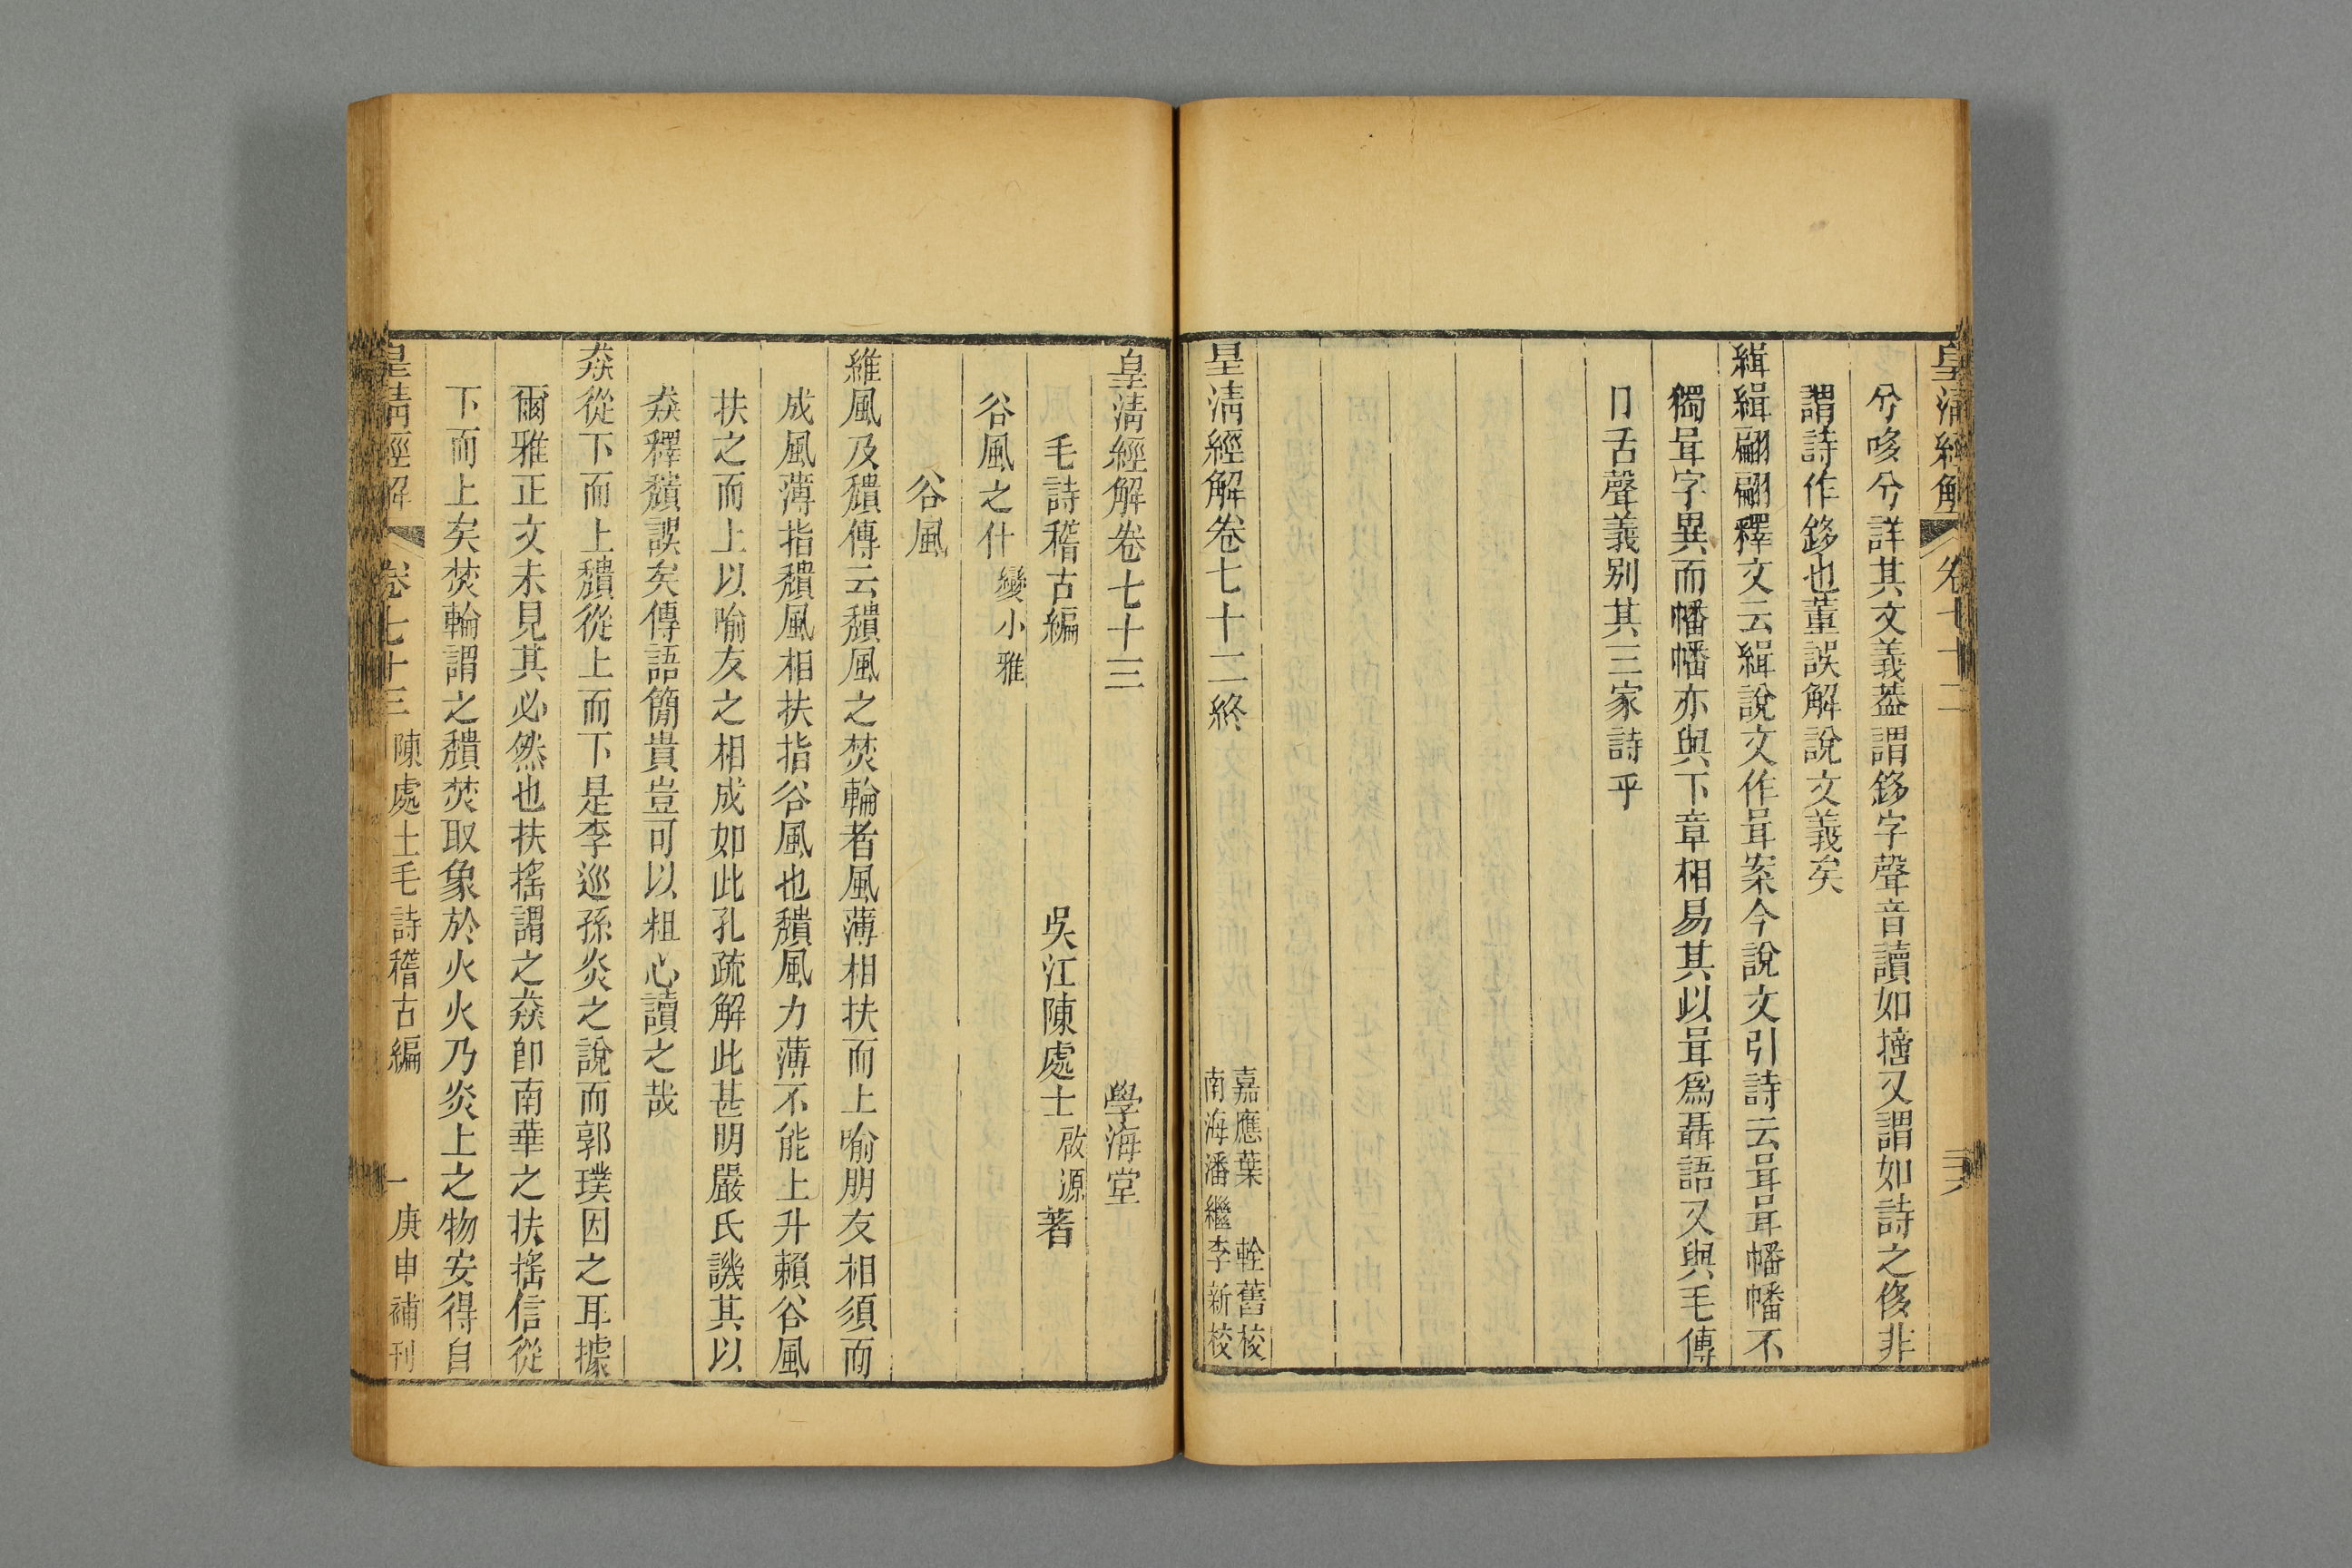 皇清經解 卷七十二
兮哆兮詳其文義葢謂鉹字聲音讀如摛又謂如詩之侈非
謂詩作鉹也董誤解說文義矣
緝緝翩翩釋文云緝說文作咠案今說文引詩云咠咠幡幡不
獨咠字異而幡幡亦與下章相易其以咠爲聶語又與毛傳
口舌聲義别其三家詩乎
皇清經解卷七十二終
嘉應葉 輇舊校
南海潘繼李新校
皇清經解卷七十三 學海堂
毛詩稽古編 吳江陳處士啟源著
谷風之什 變小雅
谷風
維風及穨傳云穨風之焚輪者風薄相扶而上喻朋友相須而
成風薄指穨風相扶指谷風也穨風力薄不能上升賴谷風
扶之而上以喻友之相成如此孔疏解此甚明嚴氏譏其以
猋釋穨誤矣傳語簡貴豈可以粗心讀之哉
猋從下而上穨從上而下是李巡孫炎之說而郭璞因之耳據
爾雅正文未見其必然也扶搖謂之猋卽南華之扶搖信從
下而上矣焚輪謂之穨焚取象於火火乃炎上之物安得自
皇清經解 卷七十三 陳處士毛詩稽古編 一 庚申補刊